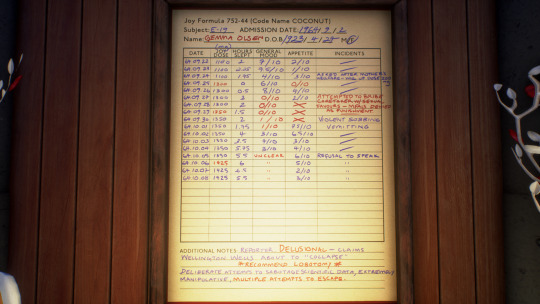 Joy Formula 752-44 (Code Name COCONUT)
Subject: E-19 ADMISSION DATE: 1964 9
Name: GEMMA OLSEN D.O.B. 1923 / 4 / 23 M/F
(mg)
DATE JOY DOSE HOURS SLEPT GENERAL MOOD APPETITE INCIDENTS
64.09.22 1100 2 7/10 2/10
64.09.23 1100 2.25 1/10
64.09.24 1100 1.75 4/10 3/10 ASKED AFTER MOTHERS
64.09.25 1300 0 6/10 0/10
64.09.26 1300 0.5 8/10 4/10
64.09.27 1300 1 0/10 1/10 ATTEMPTED TO BRIBE CARETAKER W/SEXUAL
64.09.28 1300 2 0/10 X FAVOURS - MEALS DENIED
64.09.29 1350 1.5 0/10 X AS PUNISHMENT
64.09.30 1350 2 1/10 X VIOLENT SOBBING
64.10.01 1350 1.75 1/10 VOMITTING
64.10.02 1350 4 3/10
64.10.03 1350 3/10
64.10.04 1350 5.75 3/10 4/10
64.10.05 1350 5.5 UNCLEAR 6/10 REFUSAL TO SPEAK
64.10.06 1425 6 " 5/10 "
64.10.07 1425 " 2/10 "
64.10.08 1425 5.5 " 3/10 "
ADDITIONAL NOTES: REPORTER DELUSIONAL - CLAIMS
WELLINGTON WELLS ABOUT TO "COLLAPSE"
*RECOMMEND LOBOTOMY*
DELIBERATE ATTEMPTS TO SABOTAGE SCIENTIFIC DATA, EXTREMELY
MANIPULATIVE, MULTIPLE ATTEMPTS TO ESCAPE.